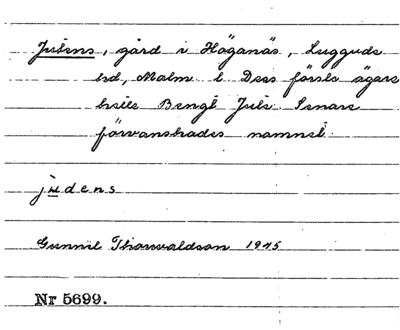 Julens, gård i Höganäs, Luggude
hd, Malm l. Dess förste ägare
hette Bengt Jule Senare
förvanskades namnet.
jùdens
Gunnil Thorvaldson 1945
Nr 5699.